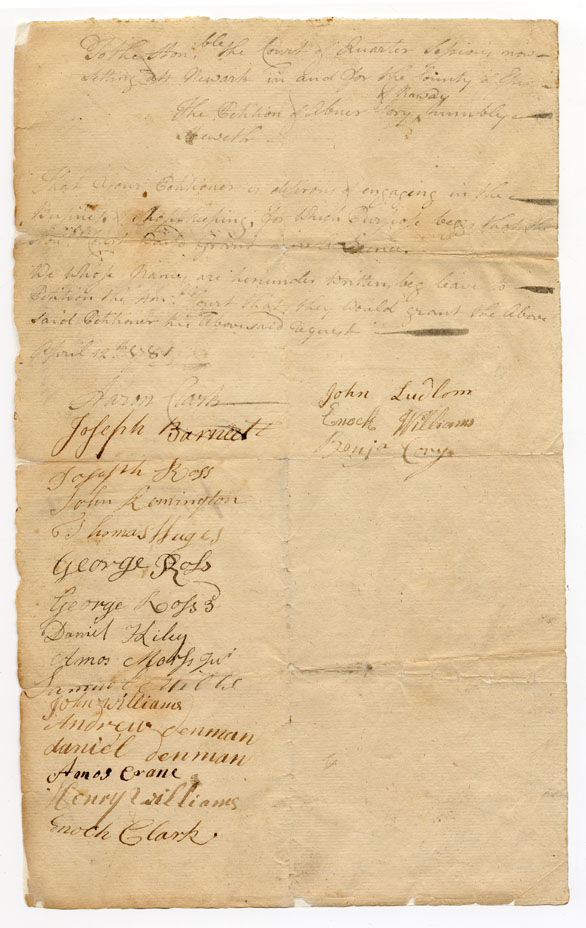 To the Hon.ble the Court of Quarter Sessions now
setting att Newark in and for the County of
of Raway
The Petition of Abner Cory humbly
sheweth
That Your Petitioner is desirous of engaging in the
Business of shopkeeping, for which Purpose begs that the
Court would grant
We Whose Names are hereunder written, beg leave to
Petition the Hon.ble Court that they would grant the Above
said Petitioner his Abovesaid Request
April 12th
Aaron Clark
Joseph Barnett
Joseph Ross
John Remington
Thomas Huges
George Ross
George Ross 3
Daniel Kiley
Amos Mors Jur
Samuel
John Williams
Andrew denman
daniel denman
Amos Crane
Henry Williams
Enoch Clark
John Ludlom
Enock Williams
Benja Cory